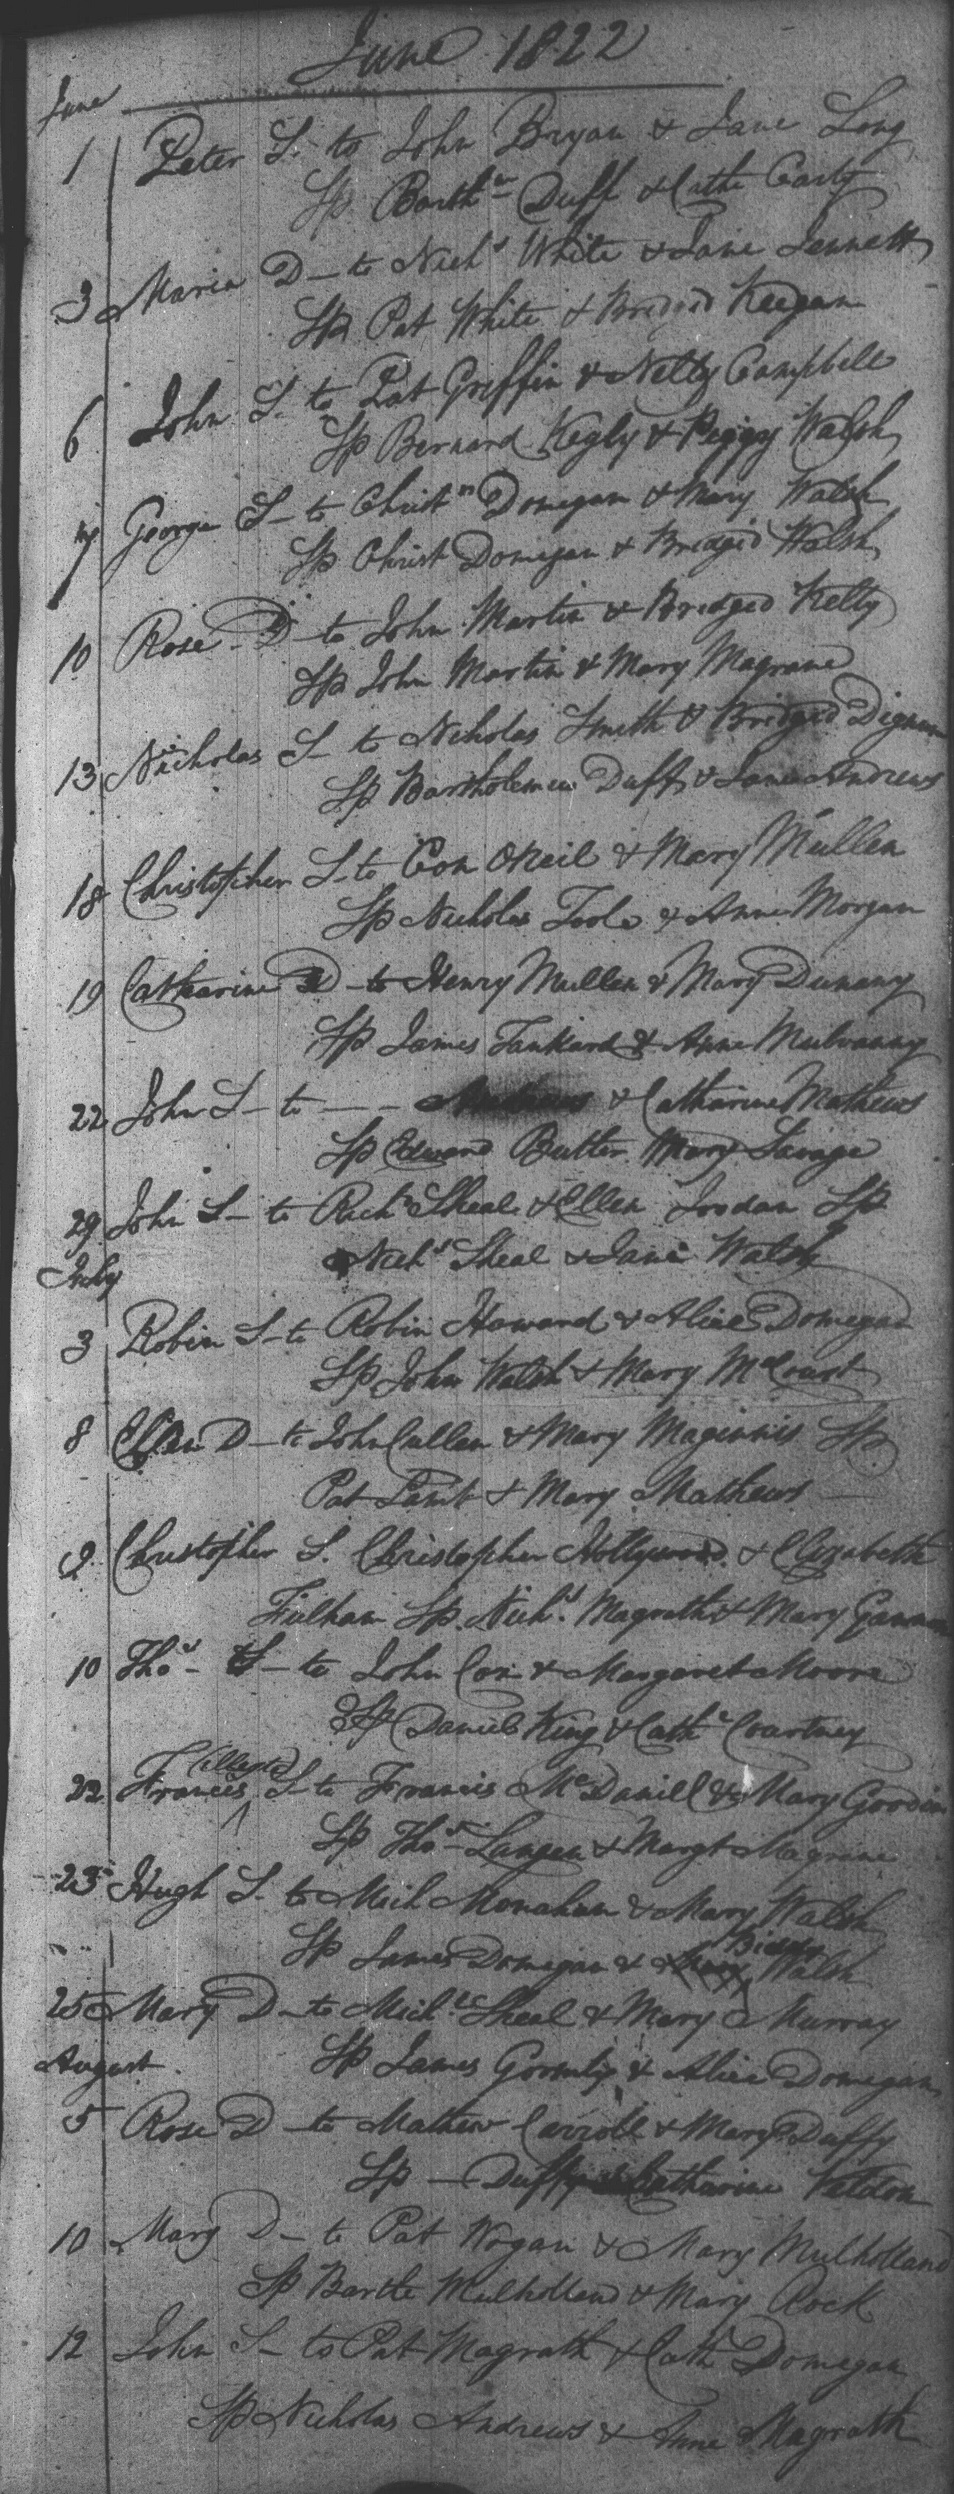 June 1822
June
1 Peter S. to John Bryan & Jane Long
Sp Barthw Duff & Cathe Carty
3 Maria D - to Nichs White & Jane Jennett
Sp Pat White & Bridgid Keegan
6 John S. to Pat Griffin & Nelly Campbell
Sp Bernard Kegly & Peggy Walsh
George S - to Christn Donegan & Mary Walsh
Sp Christ Donegan & Bridgid Walsh
10 Rose D - to John Martin & Bridged Kelly
Sp John Martin & Mary Magrane
13 Nicholas S - to Nicholas Smith & Bridged Dignam
Sp Bartholemew Duff & Jane Andrews
18 Christopher S - to Con ONeil & Mary Mullen
Sp Nicholas Toole & Anne Morgan
19 Catharine D - to Henry Mullen & Mary Dunany
Sp James Tankard & Anne Mulvanny
22 John S - to - - & Catharine Mathews
Sp Edward Butler Mary Savage
29 John S - to Richd Sheal & Ellen Jordan Sp
Nichs Sheal & Jane Walsh
July
3 Robin S - to Robin Howard & Alice Donegan
Sp John Walsh & Mary McCourt
8 Ellen D - to John Cullen & Mary Maginnis Sp
Pat Lamb & Mary Mathews
9 Christopher S. Christopher Hollywood & Elizabeth
Fulham Sp. Nichs. Magrath & Mary Gannon
10 Thos - S - to John Cox & Margaret Moore
Sp Daniel King & Cathe Courtney
22 Francis S - to Francis McDaniel & Mary Goodwin
Sp Thos Langen & Margt Magrane
23 Hugh S. to Mich Monahan & Mary Walsh
Sp James Donegan & Biddy Walsh
25 Mary D - to Michl Sheal & Mary Murray
August Sp James Gormly & Alice Donegan
5 Rose D - to Mathew Carroll & Mary Duffy
Sp - Duffy & Catharine Veldon
10 Mary D - to Pat Wogan & Mary Mulholland
Sp Bartle Mulholland & Mary Rock
12 John S - to Pat Magrath & Cath Donegan
Sp Nicholas Andrews & Anne Magrath